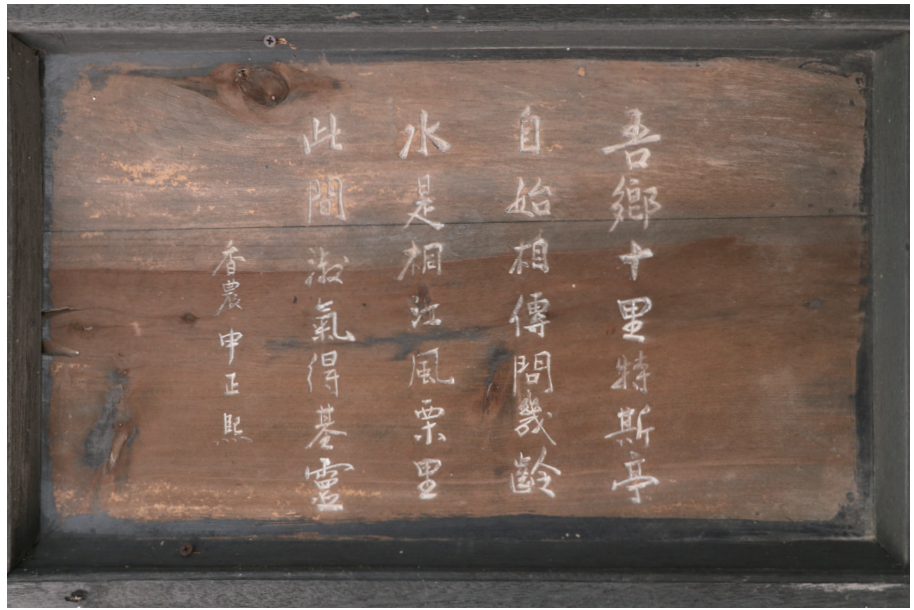 吾鄉十里特斯亭
自始相傳問幾齡
水是桐江風栗里
此間淑氣得基靈
香農申正熙